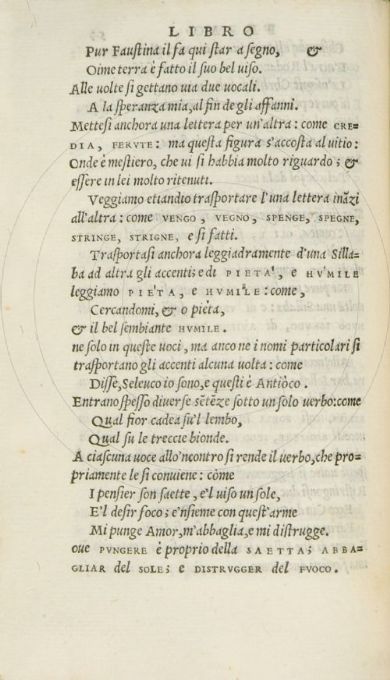 LIBRO
Pur Faustina il fa qui star a segno, &
Oime terra è fatto il suo bel viso.
Alle volte si gettano via due vocali.
A la speranza mia, al fin de gli affanni.
Mettesi anchora una lettera per un'altra: come CRE-
DIA, FERUTE: ma questa figura s'accosta al vitio:
Onde è mestiero, che vi si habbia molto riguardo; &
essere in lei molto ritenuti.
Veggiamo etiandio trasportare l'una lettera inãzi
all'altra: come VENGO, VEGNO, SPENGE, SPEGNE,
STRINGE, STRIGNE, e si fatti.
Trasportasi anchora leggiadramente d'una Silla-
ba ad altra gli accenti: e di PIETA', e HV'MILE
leggiamo PIE'TA, e HVMI'LE: come,
Cercandomi, & o pièta,
& il bel sembiante HVMILE.
ne solo in queste voci, ma anco ne i nomi particolari si
trasportano gli accenti alcuna volta: come
Disse, Seleuco io sono, e questi è Antiòco.
Entrano spesso diverse sẽtẽze sotto un solo verbo: come
Qual fior cadea su'l lembo,
Qual su le treccie bionde.
A ciascuna voce allo'ncontro si rende il verbo, che pro-
priamente le si conviene: còme
I pensier son saette, e'l viso un sole,
E'l desir foco; e'nsieme con quest'arme
Mi punge Amor, m'abbaglia, e mi distrugge.
ove PVNGERE è proprio della SAETTA; ABBA-
GLIAR del SOLE; e DISTRVGGER del FVOCO.